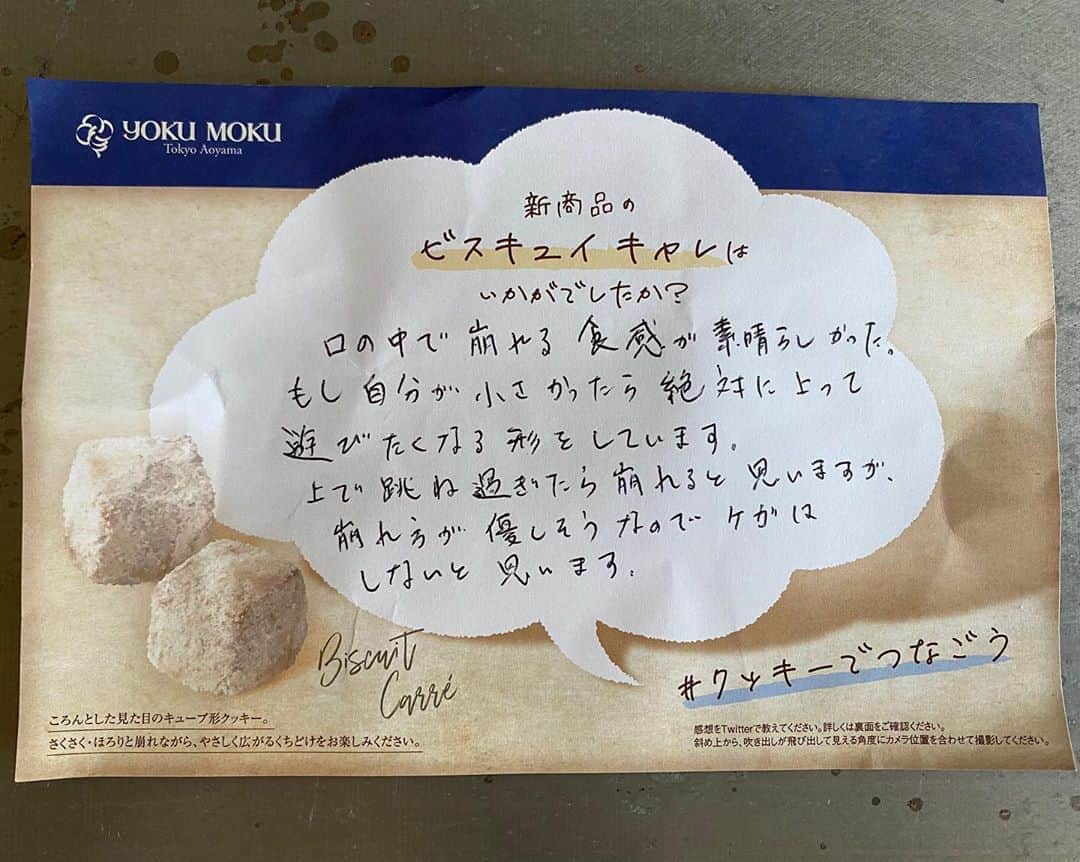 YOKU MOKU
Tokyo Aoyama
新商品の
ビスキュイキャレは
いかがでしたか?
口の中で崩れる食感が素晴らしかった。
もし自分が小さかったら絶対に上って
遊びたくなる形をしています。
上で跳ね過ぎたら崩れると思いますが、
崩れ方が優しそうなのでケガは
しないと思います。
Biscuit
Carré
#クッキーでつなごう
ころんとした見た目のキューブ形クッキー。
さくさく・ほろりと崩れながら、やさしく広がるくちどけをお楽しみください。
感想をTwitterで教えてください。詳しくは裏面をご確認ください。
斜め上から、吹き出しが飛び出して見える角度にカメラ位置を合わせて撮影してください。